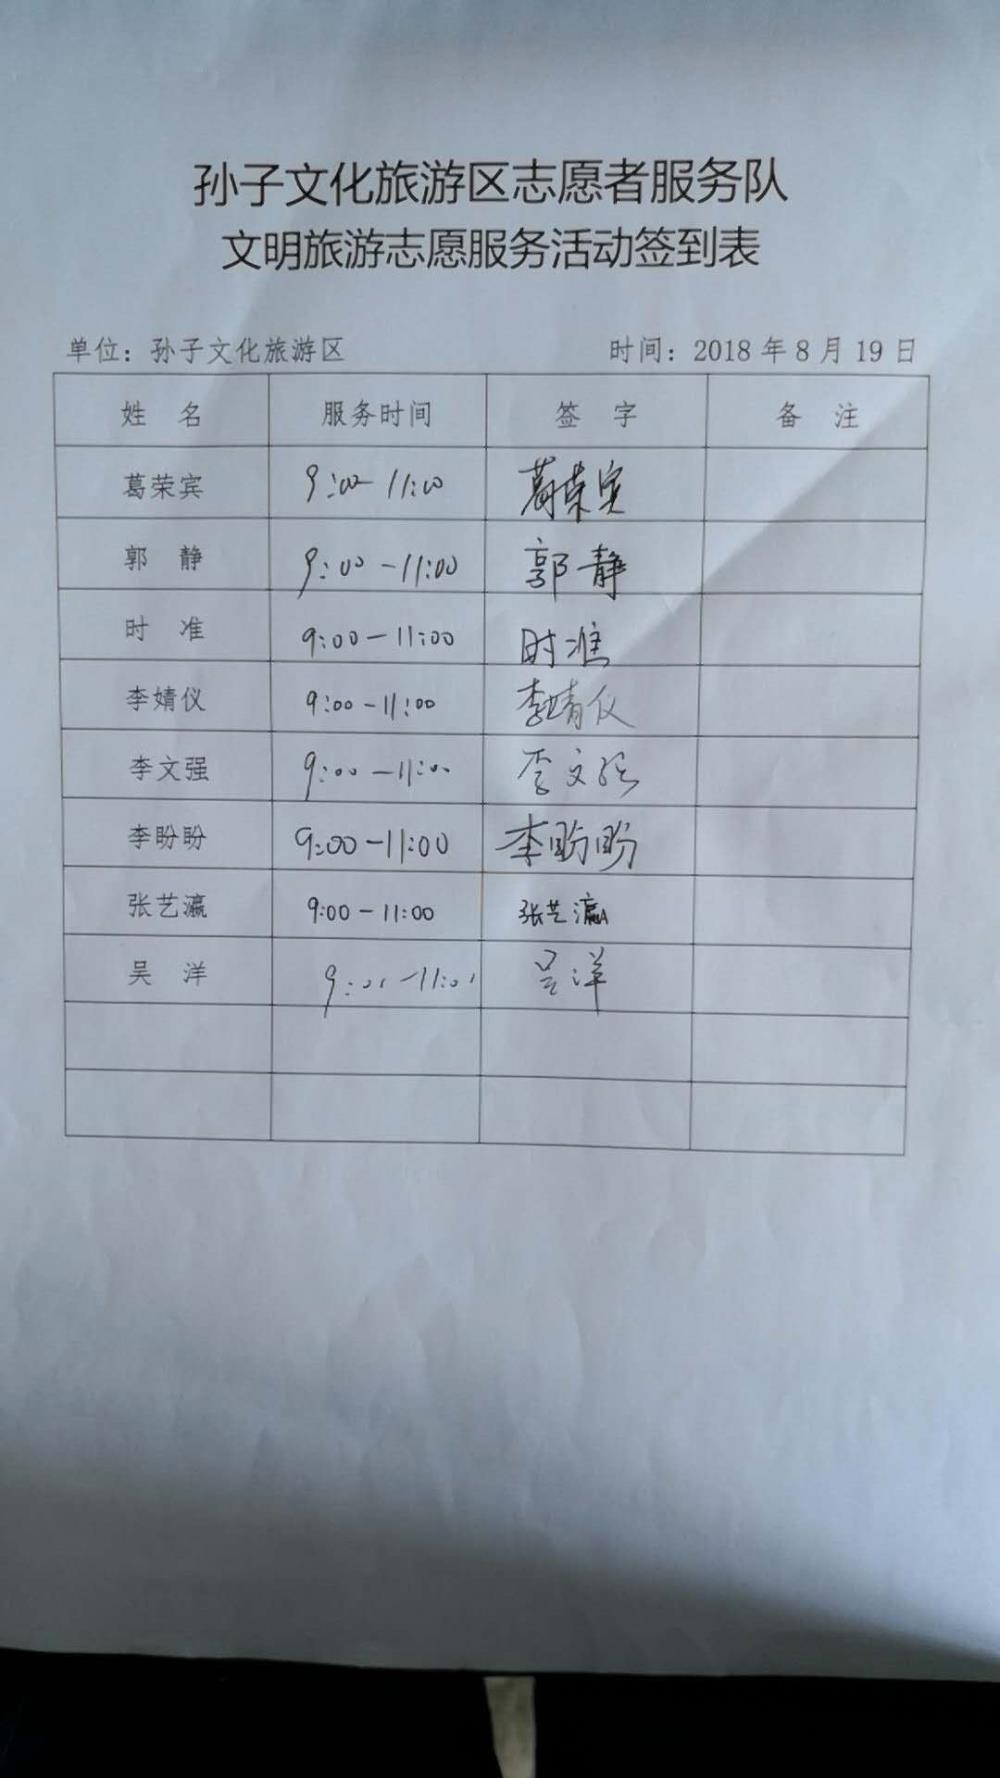 孙子文化旅游区志愿者服务队
文明旅游志愿服务活动签到表
单位：孙子文化旅游区 时间：2018年8月19日
姓 名 服务时间 签 字 备 注
葛荣宾 9:00-11:00 葛荣宾
郭 静 9:00-11:00 郭静
时 准 9:00-11:00 时准
李婧仪 9:00-11:00 李婧仪
李文强 9:00-11:00 李文强
李盼盼 9:00-11:00 李盼盼
张艺瀛 9:00-11:00 张艺瀛
吴 洋 9:00-11:00 吴洋